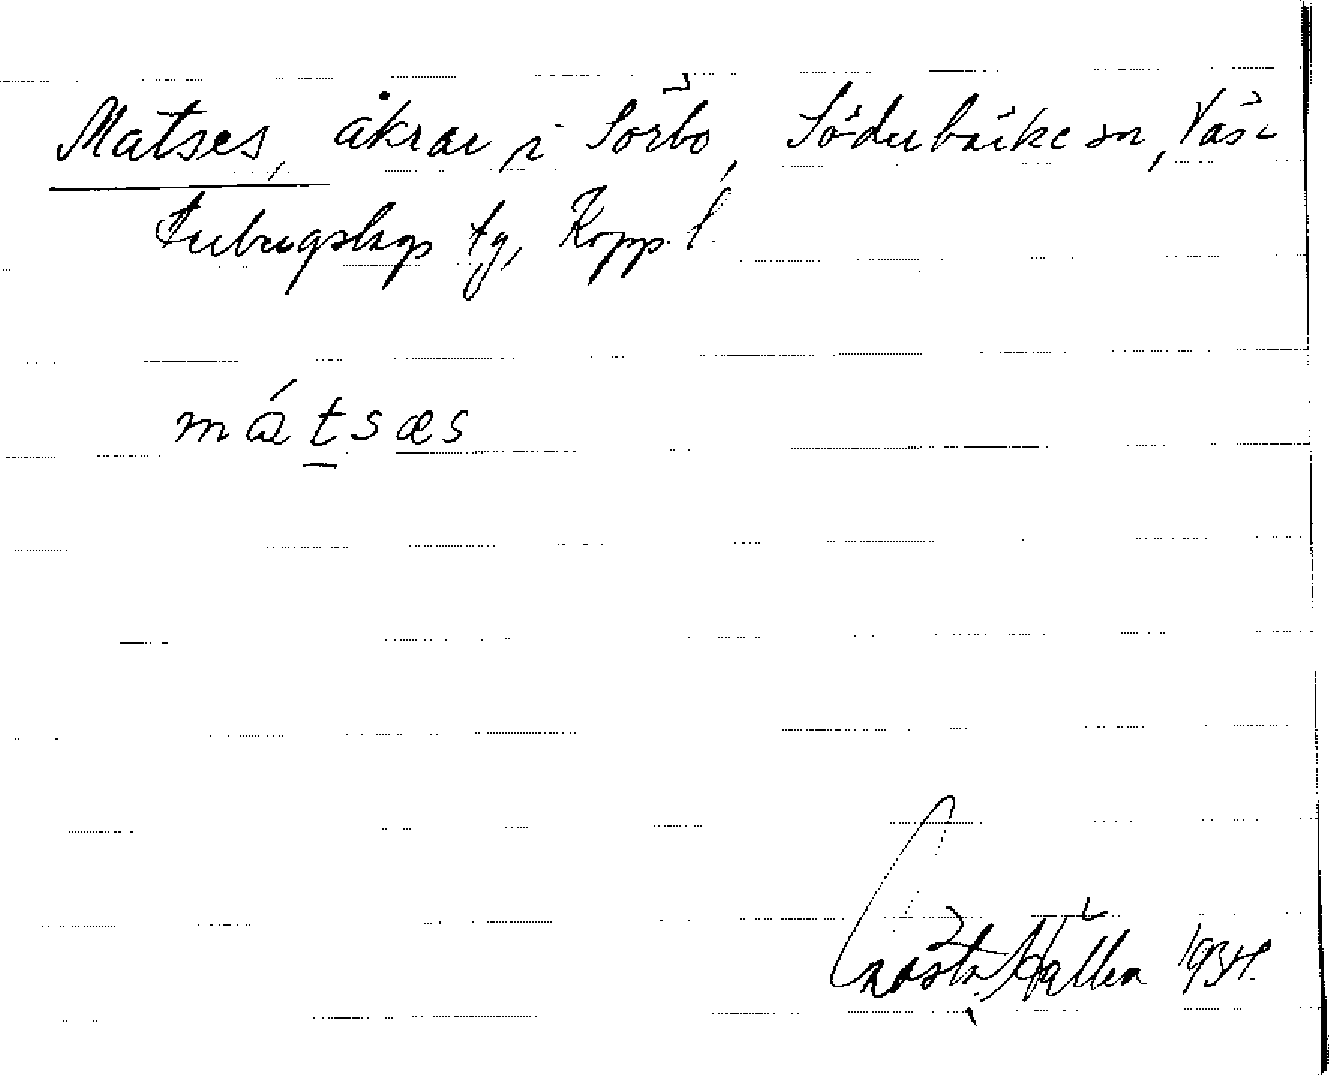 Matses, åkrar i Sörbo, Söderbärke sn, Väs-
terbergslags tg, Kopp. l.
mátsæs
Gösta Hallén 1934.